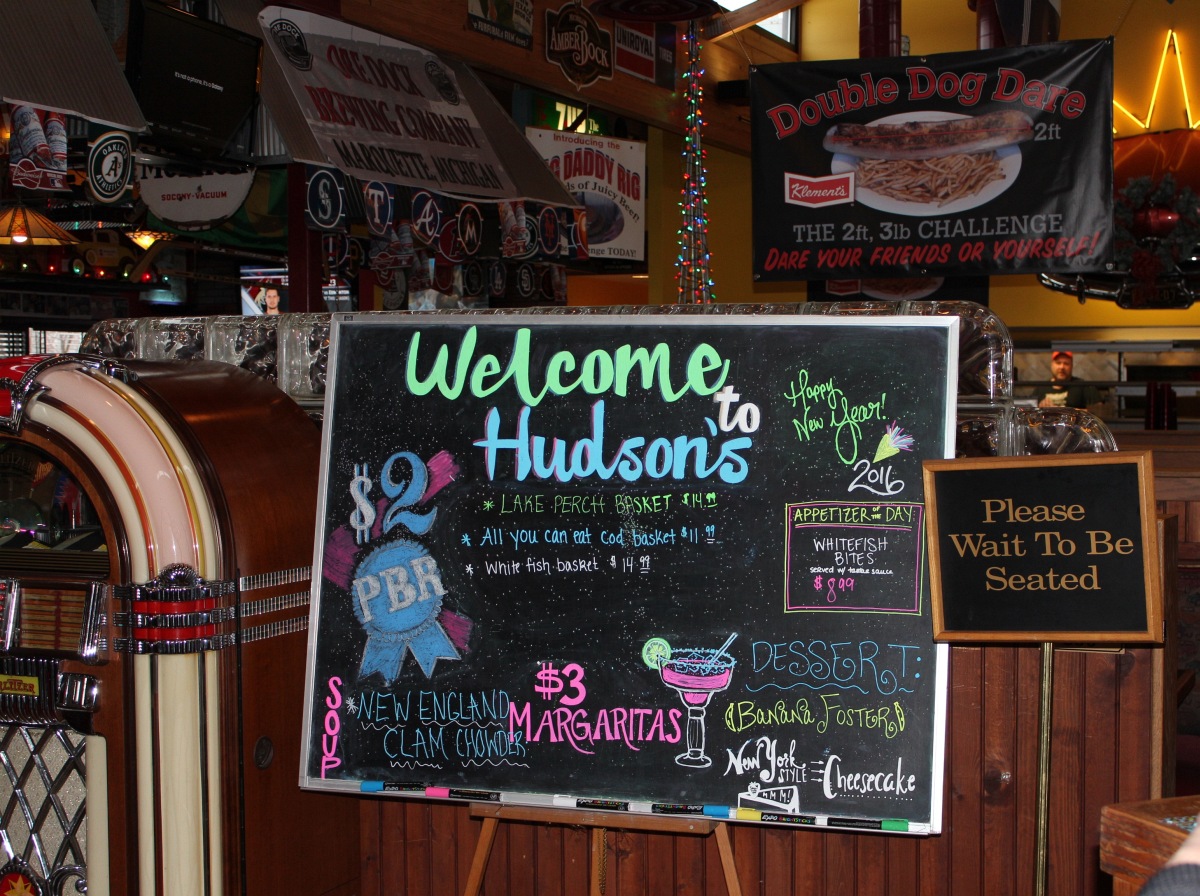 ORE DOCK
BREWING COMPANY
MARQUETTE, MICHIGAN
AMBER
BOCK
UNIROYAL
Introducing the
DADDY RIG
of Juicy Beer!
TODAY!
OAKLAND
SOCONY-VACUUM
Double Dog Dare
2ft
Klement's
THE 2ft, 3lb CHALLENGE
DARE YOUR FRIENDS OR YOURSELF!
Welcome
to
Hudson's
Happy
New Year!
2016
$2
PBR
* LAKE PERCH BASKET $14.99
* All you can eat cod basket $11.99
* White fish basket $14.99
APPETIZER OF THE DAY
WHITEFISH
BITES
SERVED W/ TARTAR SAUCE
$8.99
SOUP
*NEW ENGLAND
CLAM CHOWDER
$3
MARGARITAS
DESSERT:
BANANA FOSTER
New York
STYLE
Cheesecake
MMM!
Please
Wait To Be
Seated
EXPO